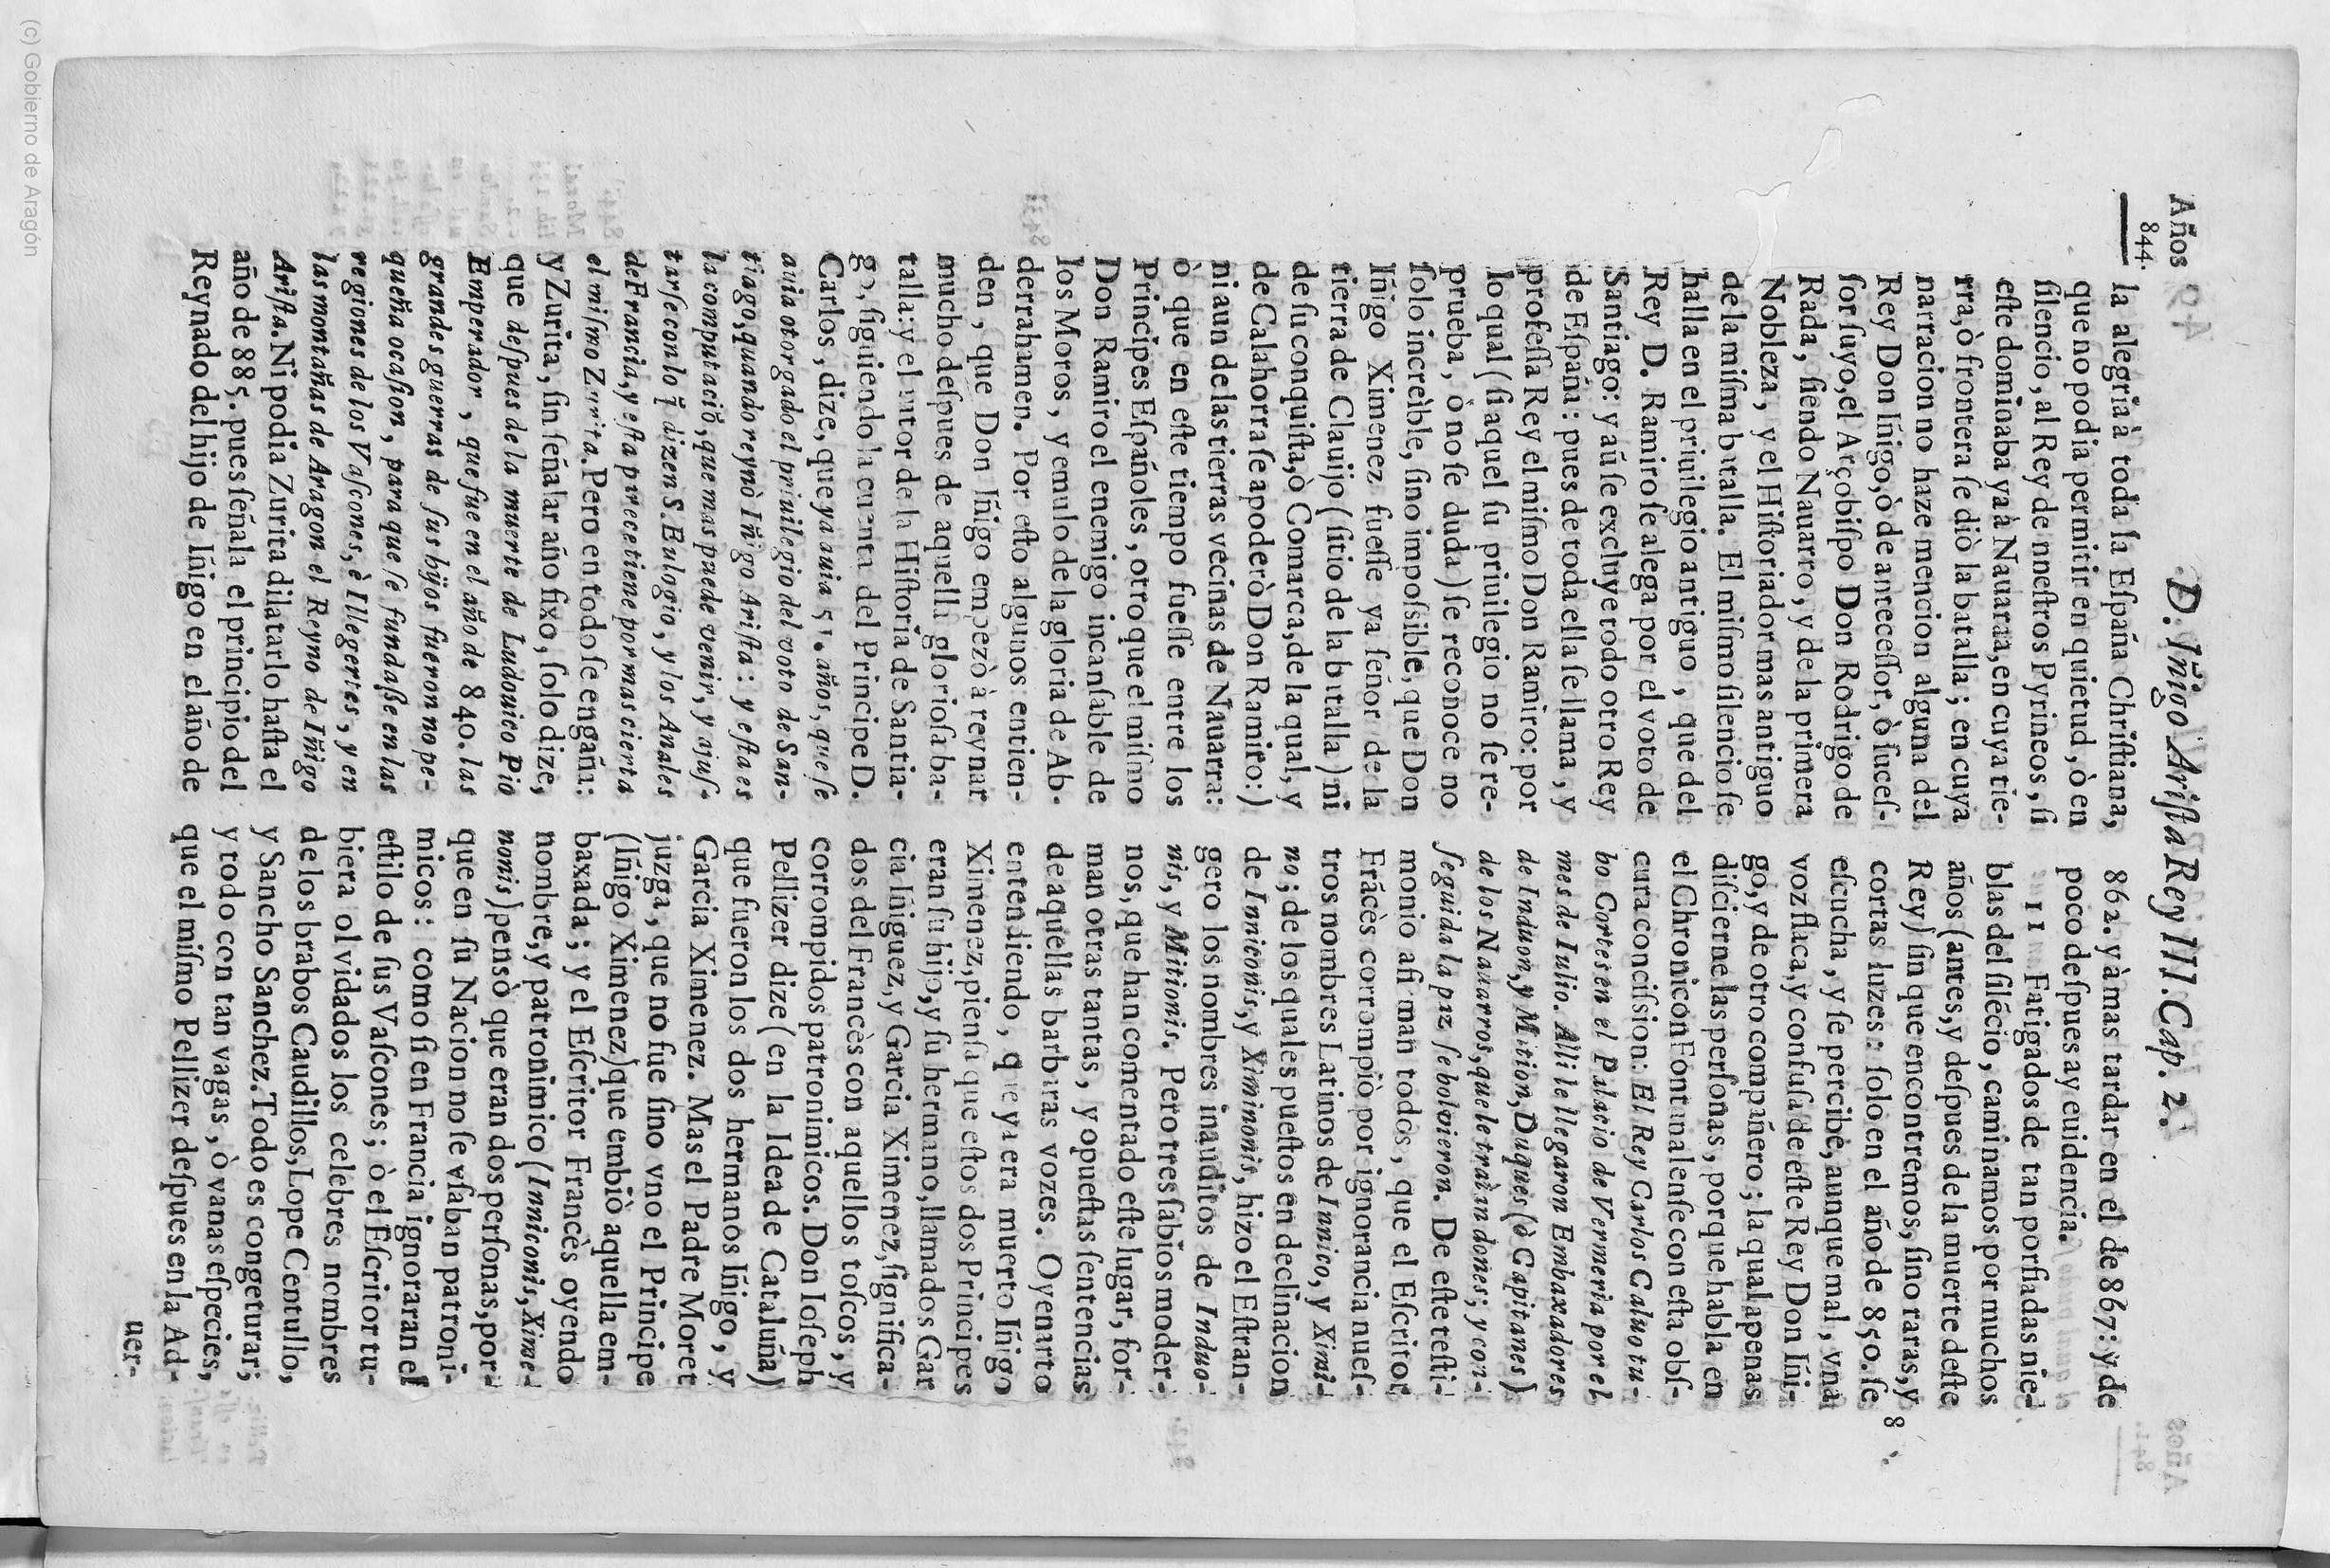 Años
844.
D. Iñigo Ariſta Rey III. Cap. 2.
la alegria à toda la Eſpaña Chriſtiana,
que no podia permitir en quietud, ò en
ſilencio, al Rey de nneſtros Pyrineos, ſi
eſte dominaba ya à Nauarra, en cuya tie-
rra, ò frontera ſe diò la batalla; en cuya
narracion no haze mencion alguna del
Rey Don Iñigo, ò de anteceſſor, ò ſuceſ-
ſor ſuyo, el Arçobiſpo Don Rodrigo de
Rada, ſiendo Nauarro, y de la primera
Nobleza, y el Hiſtoriador mas antiguo
de la miſma batalla. El miſmo ſilencio ſe
halla en el priuilegio antiguo, que del
Rey D. Ramiro ſe alega por el voto de
Santiago: y aũ ſe excluye todo otro Rey
de Eſpaña: pues de toda ella ſe llama, y
profeſſa Rey el miſmo Don Ramiro: por
lo qual (ſi aquel ſu priuilegio no ſe re-
prueba, ò no ſe duda) ſe reconoce no
ſolo increìble, ſino impoſsible, que Don
Iñigo Ximenez fueſſe ya ſeñor de la
tierra de Clauijo (ſitio de la batalla) ni
de ſu conquiſta, ò Comarca, de la qual, y
de Calahorra ſe apoderò Don Ramiro:)
ni aun de las tierras vecinas de Nauarra:
ò que en eſte tiempo fueſſe entre los
Principes Eſpañoles, otro que el miſmo
Don Ramiro el enemigo incanſable de
los Moros, y emulo de la gloria de Ab-
derrahamen. Por eſto algunos entien-
den, que Don Iñigo empezò à reynar
mucho deſpues de aquella glorioſa ba-
talla: y el autor de la Hiſtoria de Santia-
go, ſiguiendo la cuenta del Principe D.
Carlos, dize, que ya auia 51. años, que ſe
auia otorgado el priuilegio del voto de San-
tiago, quando reynò Iñigo Ariſta: y eſta es
la computaciõ, que mas puede venir, y ajuſ-
tarſe con lo q̃ dizen S. Eulogio, y los Anales
de Francia, y eſta parece tiene por mas cierta
el miſmo Zurita. Pero en todo ſe engaña:
y Zurita, ſin ſeñalar año fixo, ſolo dize,
que deſpues de la muerte de Ludouico Pio
Emperador, que fue en el año de 840. las
grandes guerras de ſus hijos fueron no pe-
queña ocaſion, para que ſe fundaſſe en las
regiones de los Vaſcones, è Illegertes, y en
las montañas de Aragon el Reyno de Iñigo
Ariſta. Ni podia Zurita dilatarlo haſta el
año de 885. pues ſeñala el principio del
Reynado del hijo de Iñigo en el año de
862. y à mas tardar en el de 867: y de
poco deſpues ay euidencia.
11 Fatigados de tan porfiadas nie-
blas del ſilẽcio, caminamos por muchos
años (antes, y deſpues de la muerte deſte
Rey) ſin que encontremos, ſino raras, y
cortas luzes: ſolo en el año de 850. ſe
eſcucha, y ſe percibe, aunque mal, vna
voz flaca, y confuſa de eſte Rey Don Iñi-
go, y de otro compañero; la qual apenas
diſcierne las perſonas, porque habla en
el Chronicòn Fontanalenſe con eſta obſ-
cura conciſsion: El Rey Carlos Caluo tu-
bo Cortes en el Palacio de Vermeria por el
mes de Iulio. Alli le llegaron Embaxadores
de Induon, y Mition, Duques (ò Capitanes)
de los Nauarros, que le traìan dones; y con-
ſeguida la paz ſe bolvieron. De eſte teſti-
monio afiman todos, que el Eſcritor
Frãcès corrompiò por ignorancia nueſ-
tros nombres Latinos de Innico, y Ximi-
no; de los quales pueſtos en declinacion
de Inniconis, y Ximinonis, hizo el Eſtran-
gero los nombres inauditos de Induo-
nis, y Mitionis. Pero tres ſabios moder-
nos, que han comentado eſte lugar, for-
man otras tantas, y opueſtas ſentencias
de aquellas barbaras vozes. Oyenarto
entendiendo, que ya era muerto Iñigo
Ximenez, pienſa que eſtos dos Principes
eran ſu hijo, y ſu hermano, llamados Gar
cia Iñiguez, y Garcia Ximenez, ſignifica-
dos del Francès con aquellos toſcos, y
corrompidos patronimicos. Don Ioſeph
Pellizer dize (en la Idea de Cataluña)
que fueron los dos hermanos Iñigo, y
Garcia Ximenez. Mas el Padre Moret
juzga, que no fue ſino vno el Principe
(Iñigo Ximenez) que embiò aquella em-
baxada; y el Eſcritor Francès oyendo
nombre, y patronimico (Inniconis, Xime-
nonis) pensò que eran dos perſonas, por-
que en ſu Nacion no ſe vſaban patroni-
micos: como ſi en Francia ignoraran el
eſtilo de ſus Vaſcones; ò el Eſcritor tu-
biera olvidados los celebres nombres
de los brabos Caudillos, Lope Centullo,
y Sancho Sanchez. Todo es congeturar;
y todo con tan vagas, ò vanas eſpecies,
que el miſmo Pellizer deſpues en la Ad-
uer-
(c) Gobierno de Aragón